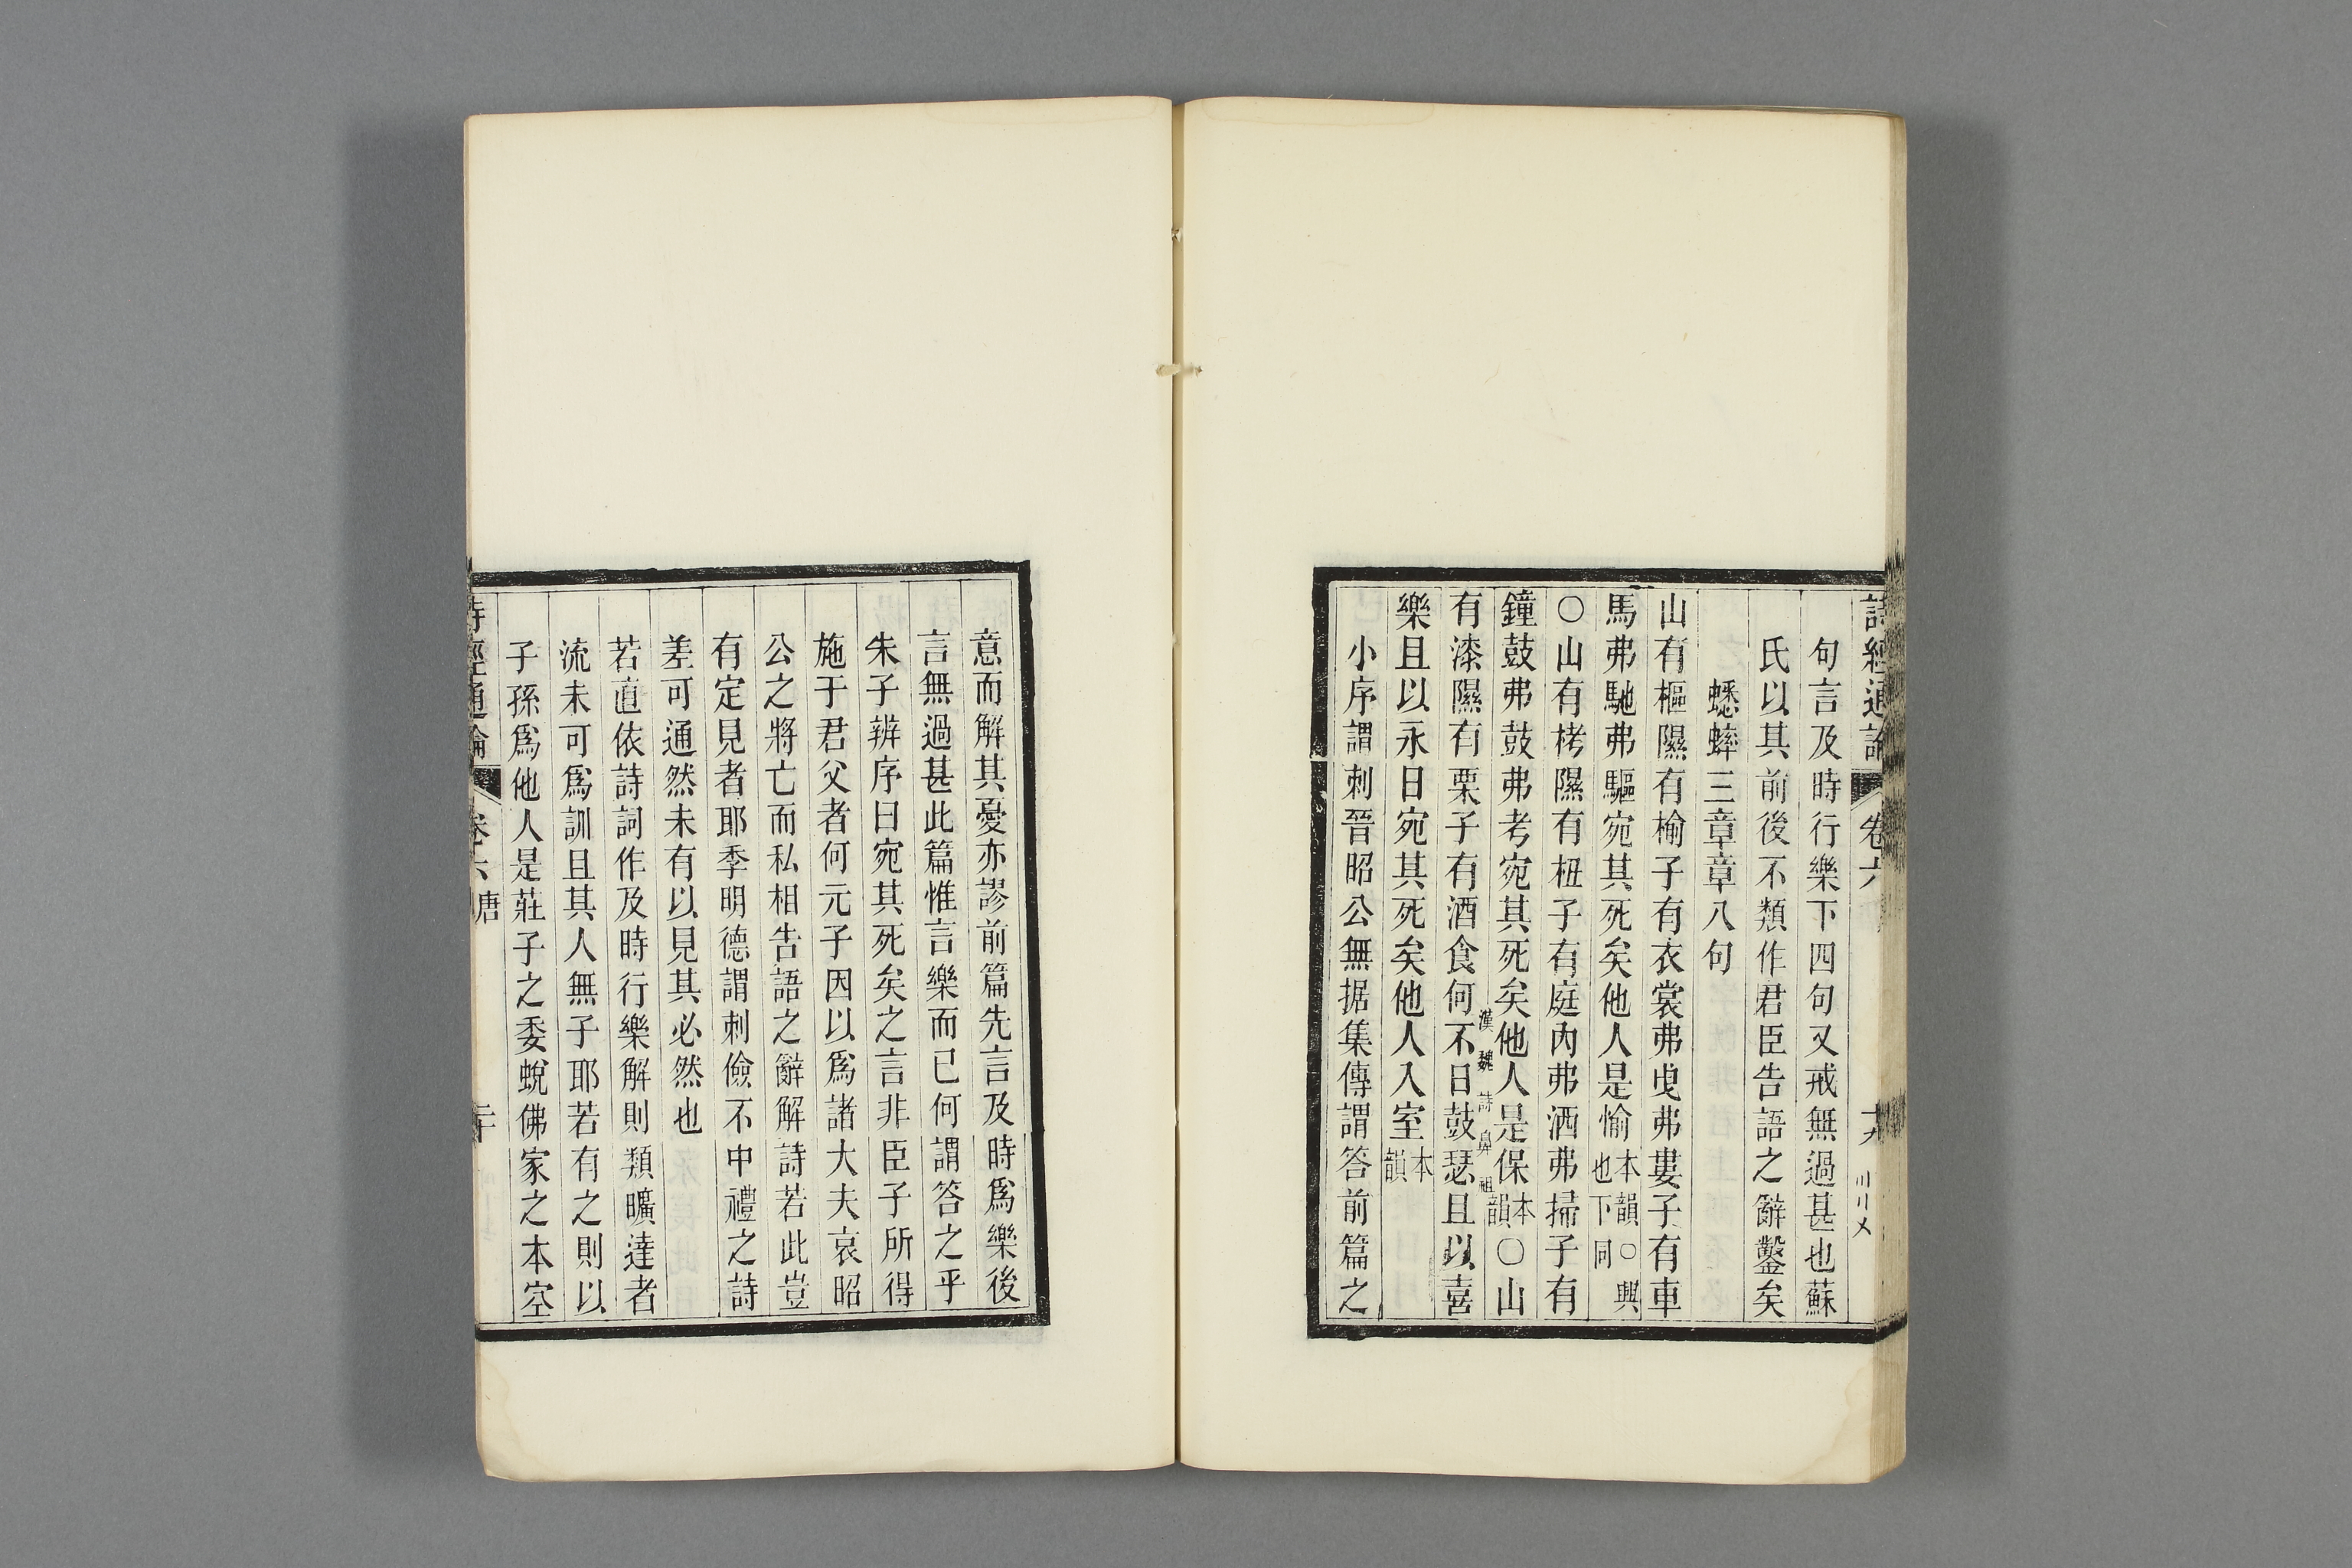 詩經通論 卷六 十九
句言及時行樂下四句又戒無過甚也蘇
氏以其前後不類作君臣告語之辭鑿矣
蟋蟀三章章八句
山有樞隰有榆子有衣裳弗曳弗婁子有車
馬弗馳弗驅宛其死矣他人是愉本韻○興也下同
○山有栲隰有杻子有庭內弗洒弗掃子有
鐘鼓弗鼓弗考宛其死矣他人是保本韻○山
漢魏詩鼻祖
有漆隰有栗子有酒食何不日鼓瑟且以喜
樂且以永日宛其死矣他人入室本韻
小序謂刺晉昭公無据集傳謂答前篇之
意而解其憂亦謬前篇先言及時爲樂後
言無過甚此篇惟言樂而已何謂答之乎
朱子辨序曰宛其死矣之言非臣子所得
施于君父者何元子因以爲諸大夫哀昭
公之將亡而私相告語之辭解詩若此豈
有定見者耶季明德謂刺儉不中禮之詩
差可通然未有以見其必然也
若直依詩詞作及時行樂解則類曠達者
流未可爲訓且其人無子耶若有之則以
子孫爲他人是莊子之委蛻佛家之本空
詩經通論 卷六 唐 二十